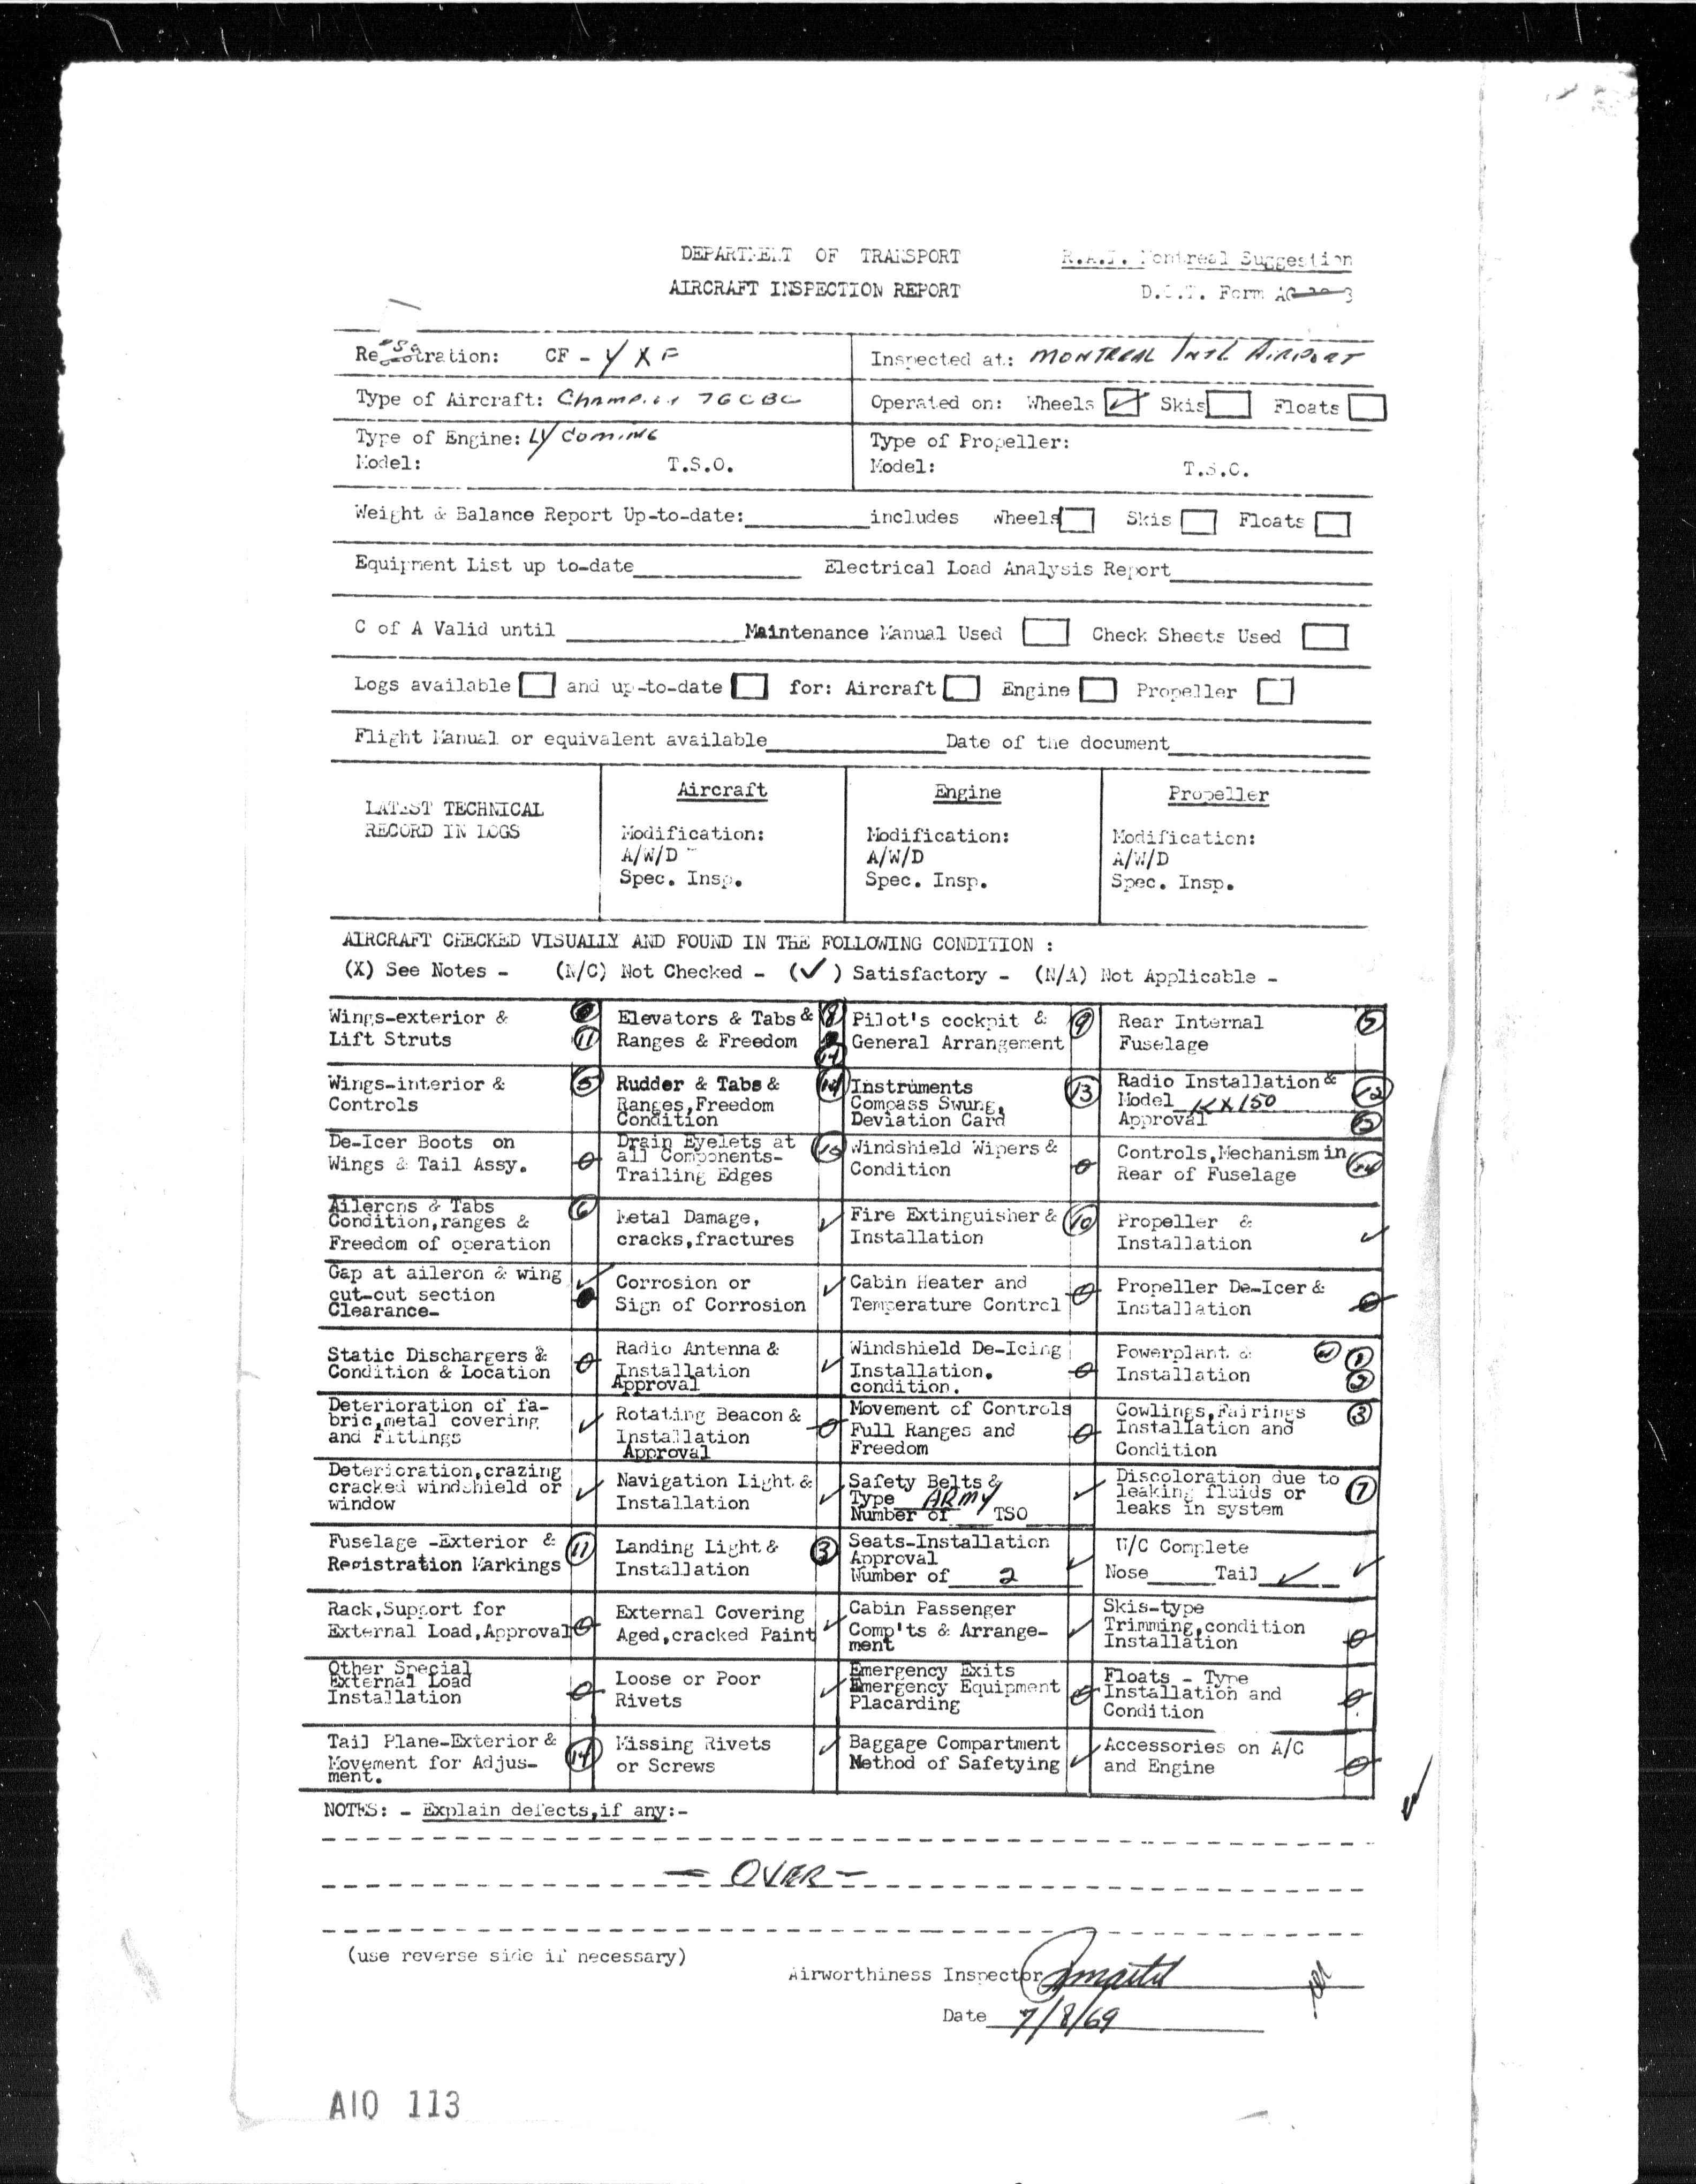 DEPARTMENT OF TRANSPORT
R.A.I. Montreal Suggestion
AIRCRAFT INSPECTION REPORT
D.O.T. Form
Registration: CF - YXF
Inspected at: MONTREAL INTL AIRPORT
Type of Aircraft: Champion 7GCBC
Operated on: Wheels ✓ Skis Floats
Type of Engine: Lycoming
Type of Propeller:
Model: T.S.O.
Model: T.S.O.
Weight & Balance Report Up-to-date: includes Wheels Skis Floats
Equipment List up to-date Electrical Load Analysis Report
C of A Valid until Maintenance Manual Used Check Sheets Used
Logs available and up-to-date for: Aircraft Engine Propeller
Flight Manual or equivalent available Date of the document
LATEST TECHNICAL
RECORD IN LOGS
Aircraft
Modification:
A/W/D
Spec. Insp.
Engine
Modification:
A/W/D
Spec. Insp.
Propeller
Modification:
A/W/D
Spec. Insp.
AIRCRAFT CHECKED VISUALLY AND FOUND IN THE FOLLOWING CONDITION :
(X) See Notes - (N/C) Not Checked - (✓) Satisfactory - (N/A) Not Applicable -
Wings-exterior &
Lift Struts 11
Elevators & Tabs & 8
Ranges & Freedom 14
Pilot's cockpit & 9
General Arrangement
Rear Internal 5
Fuselage
Wings-interior & 5
Controls
Rudder & Tabs & 14
Ranges, Freedom
Condition
Instruments 13
Compass Swung,
Deviation Card
Radio Installation & 12
Model KX150
Approval
De-Icer Boots on
Wings & Tail Assy.
Drain Eyelets at 15
all Components-
Trailing Edges
Windshield Wipers &
Condition
Controls, Mechanism in
Rear of Fuselage
Ailerons & Tabs 6
Condition, ranges &
Freedom of operation
Metal Damage, ✓
cracks, fractures
Fire Extinguisher & 10
Installation
Propeller & ✓
Installation
Gap at aileron & wing ✓
cut-cut section
Clearance-
Corrosion or ✓
Sign of Corrosion
Cabin Heater and
Temperature Control
Propeller De-Icer &
Installation
Static Dischargers &
Condition & Location
Radio Antenna & ✓
Installation
Approval
Windshield De-Icing
Installation.
condition.
Powerplant & 1
Installation 2
Deterioration of fa- ✓
bric, metal covering
and Fittings
Rotating Beacon &
Installation
Approval
Movement of Controls
Full Ranges and
Freedom
Cowlings, Fairings 3
Installation and
Condition
Deterioration, crazing ✓
cracked windshield or
window
Navigation Light & ✓
Installation
Safety Belts & ✓
Type ARMY
Number of TSO
Discoloration due to 7
leaking fluids or
leaks in system
Fuselage -Exterior & 11
Registration Markings
Landing Light & 3
Installation
Seats-Installation ✓
Approval
Number of 2
U/C Complete ✓
Nose Tail ✓
Rack, Support for
External Load, Approval
External Covering ✓
Aged, cracked Paint
Cabin Passenger ✓
Comp'ts & Arrange-
ment
Skis-type
Trimming, condition
Installation
Other Special
External Load
Installation
Loose or Poor ✓
Rivets
Emergency Exits
Emergency Equipment
Placarding
Floats - Type
Installation and
Condition
Tail Plane-Exterior & 14
Movement for Adjus-
ment.
Missing Rivets ✓
or Screws
Baggage Compartment ✓
Method of Safetying
Accessories on A/C
and Engine
NOTES: - Explain defects, if any:-
- OVER -
(use reverse side if necessary)
Airworthiness Inspector
Date 7/8/69
AIO 113